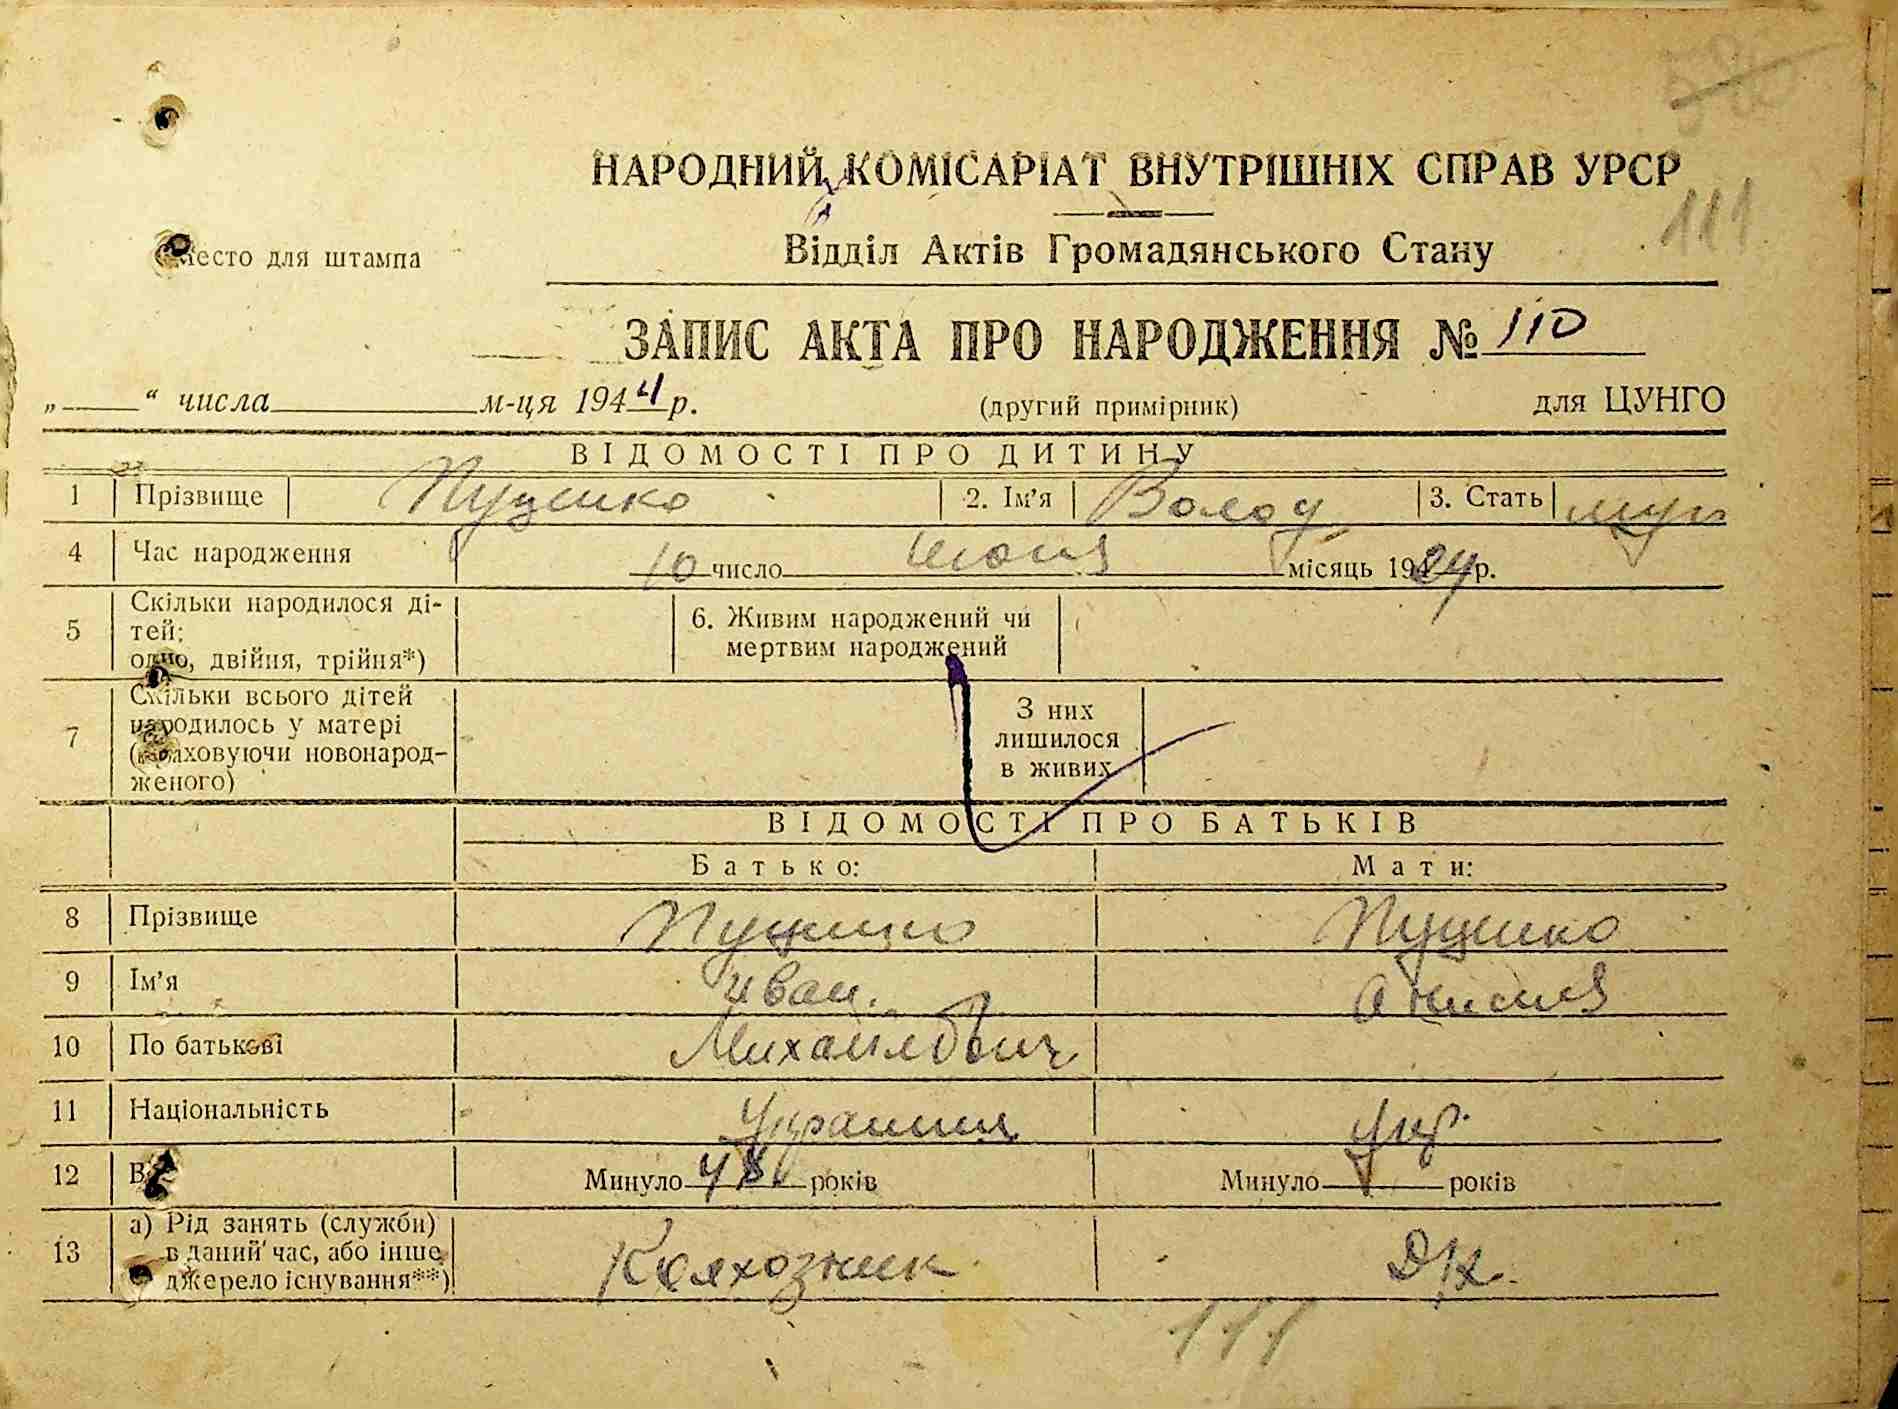 111
НАРОДНИЙ КОМІСАРІАТ ВНУТРІШНІХ СПРАВ УРСР
Место для штампа
Відділ Актів Громадянського Стану
ЗАПИС АКТА ПРО НАРОДЖЕННЯ № 110
„ “ числа м-ця 1944 р.
(другий примірник)
для ЦУНГО
ВІДОМОСТІ ПРО ДИТИНУ
1 Прізвище 2. Ім'я Волод 3. Стать муж
4 Час народження 10 число июня місяць 1924 р.
5 Скільки народилося ді-
тей;
одно, двійня, трійня*)
6. Живим народжений чи
мертвим народжений
7 Скільки всього дітей
народилось у матері
(враховуючи новонарод-
женого)
З них
лишилося
в живих
ВІДОМОСТІ ПРО БАТЬКІВ
Батько: Мати:
8 Прізвище
9 Ім'я Иван
10 По батькові Михайлович
11 Національність Украинец Укр.
12 Минуло 48 років Минуло років
13 а) Рід занять (служби)
в даний час, або інше
джерело існування**)
Колхозник Д/х.
111